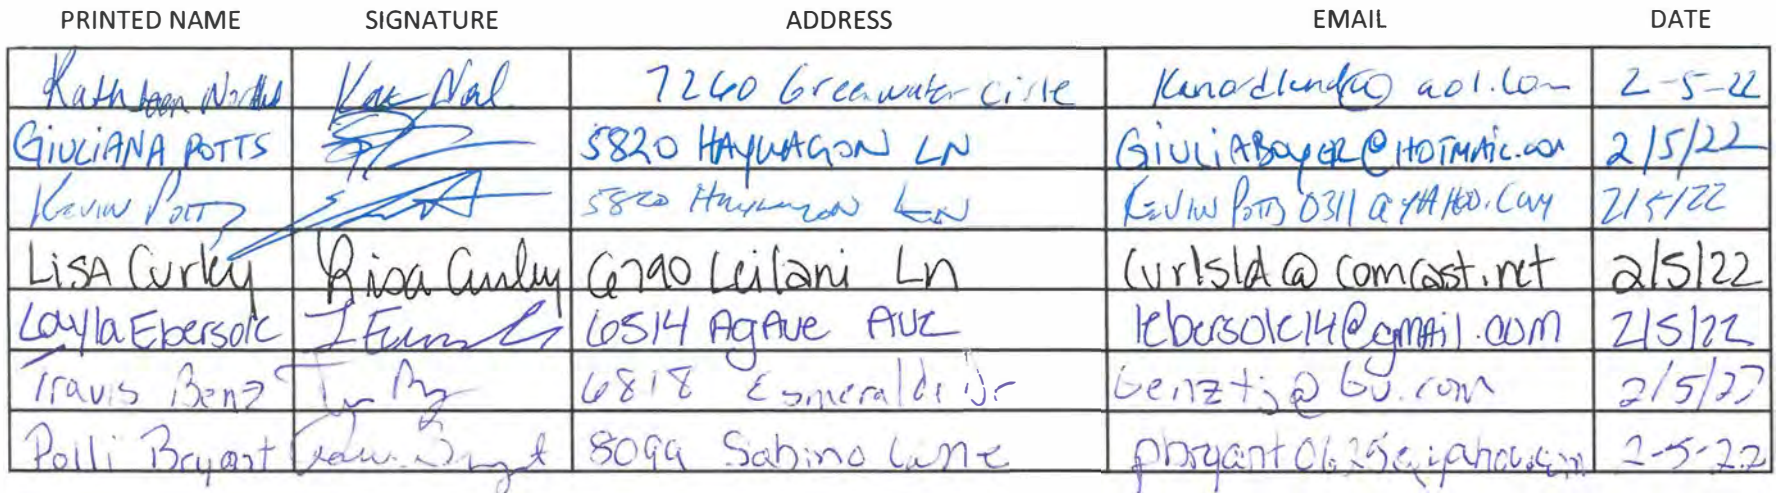 PRINTED NAME SIGNATURE ADDRESS EMAIL DATE
Kathleen 7260 Greenwater circle kanordlund@aol.com 2-5-22
GIULIANA POTTS 5820 HAYWAGON LN GIULIABOYER@HOTMAIL.COM 2/5/22
KEVIN POTTS 5820 HAYWAGON LN KEVINPOTTS0311@YAHOO.COM 2/5/22
LISA Curley Lisa Curley 6790 Leilani Ln curlsld@comcast.net 2/5/22
Layla Ebersole 6514 AgAve AVE lebersole14@gmail.com 2/5/22
Travis Benz 6818 Esmeralda Dr benztj@ .com 2/5/22
Polli Bryant 8099 Sabino Lane pbryant0625@yahoo.com 2-5-22